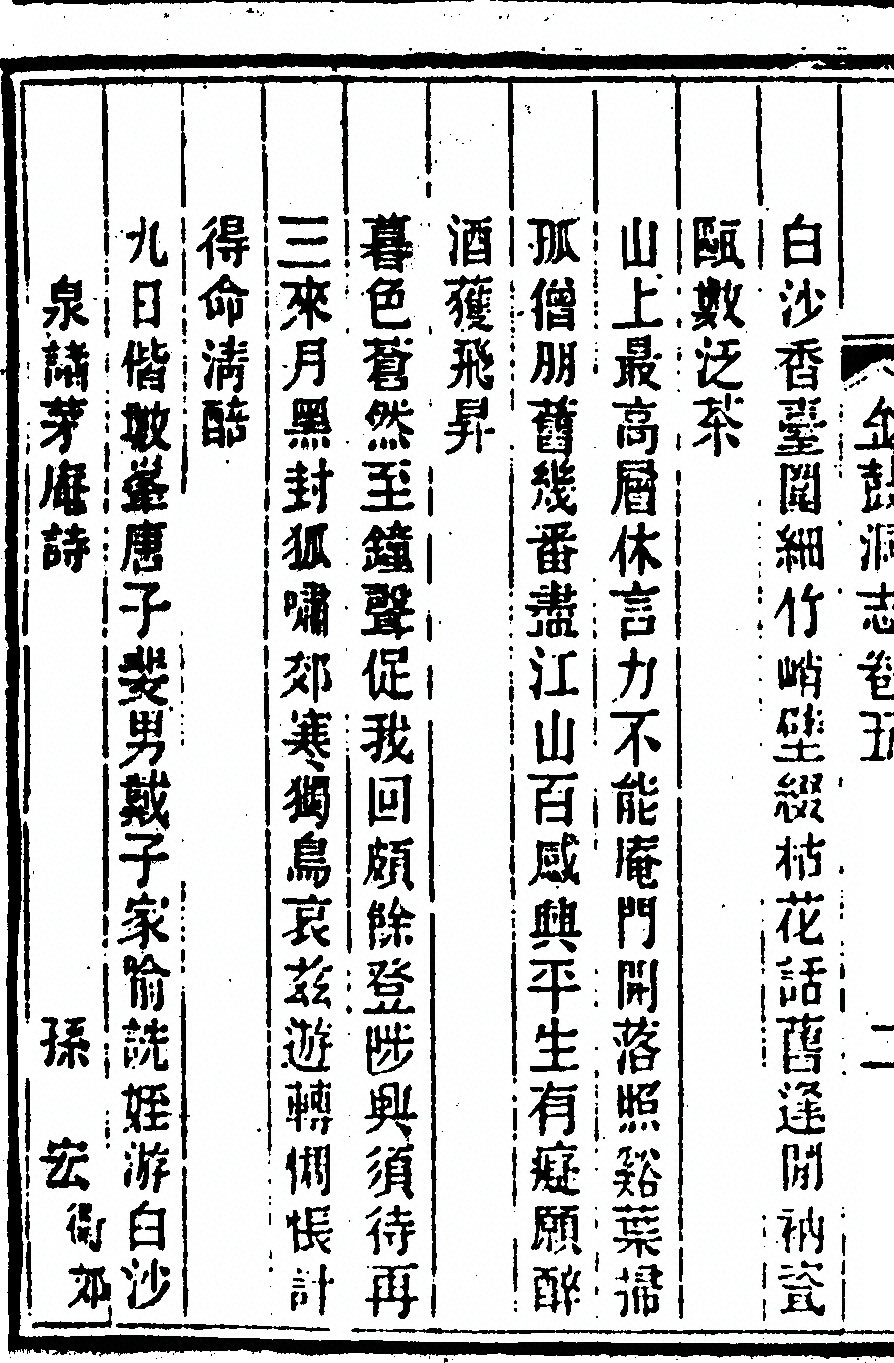 金鼓洞志卷五 二
白沙香臺細竹峭壁綴枯花話舊逢閒衲瓷
甌數泛茶
山上最高層休言力不能庵門開落照谿葉掃
孤僧朋舊幾番盡江山百感興平生有癡願醉
酒獲飛昇
暮色蒼然至鐘聲促我回頗餘登陟興須待再
三來月黑封狐嘯郊寒獨鳥哀茲遊轉惆悵計
得命淸醅
九日偕唐子斐男戴子家喻詵姪游白沙
泉諸茅庵詩 孫 宏 衡郊